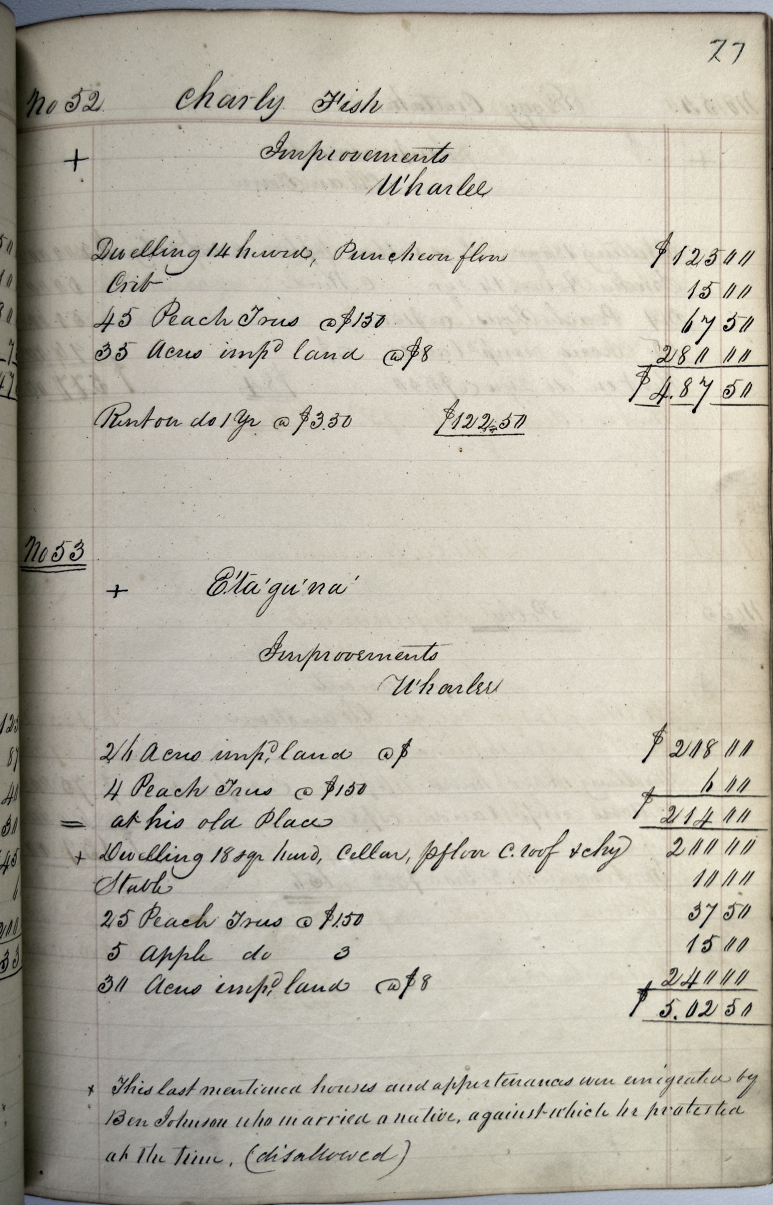 77
No 52 Charly Fish
+ Improvements
Wharlee
Dwelling 14 hewed, Puncheon floor $125 00
Crib 15 00
45 Peach Trees @ $1.50 67 50
35 Acres imp.d land @ $8 280 00
$4.87 50
Rent on do 1 Yr @ $3.50 $122.50
No 53
+ E'ta'gu'na'
Improvements
Wharlee
26 Acres imp.d land @ $ $208 00
4 Peach Trees @ $1.50 6 00
= at his old Place $214 00
+ Dwelling 18 sqr hewd, Cellar, pfloor C. roof & chy 200 00
Stable 10 00
25 Peach Trees @ $1.50 37 50
5 Apple do 3 15 00
30 Acres imp.d land @ $8 240 00
$5.02 50
x This last mentioned houses and appertenances were emigrated by
Ben Johnson who married a native, against which he protested
at the time. (disallowed)